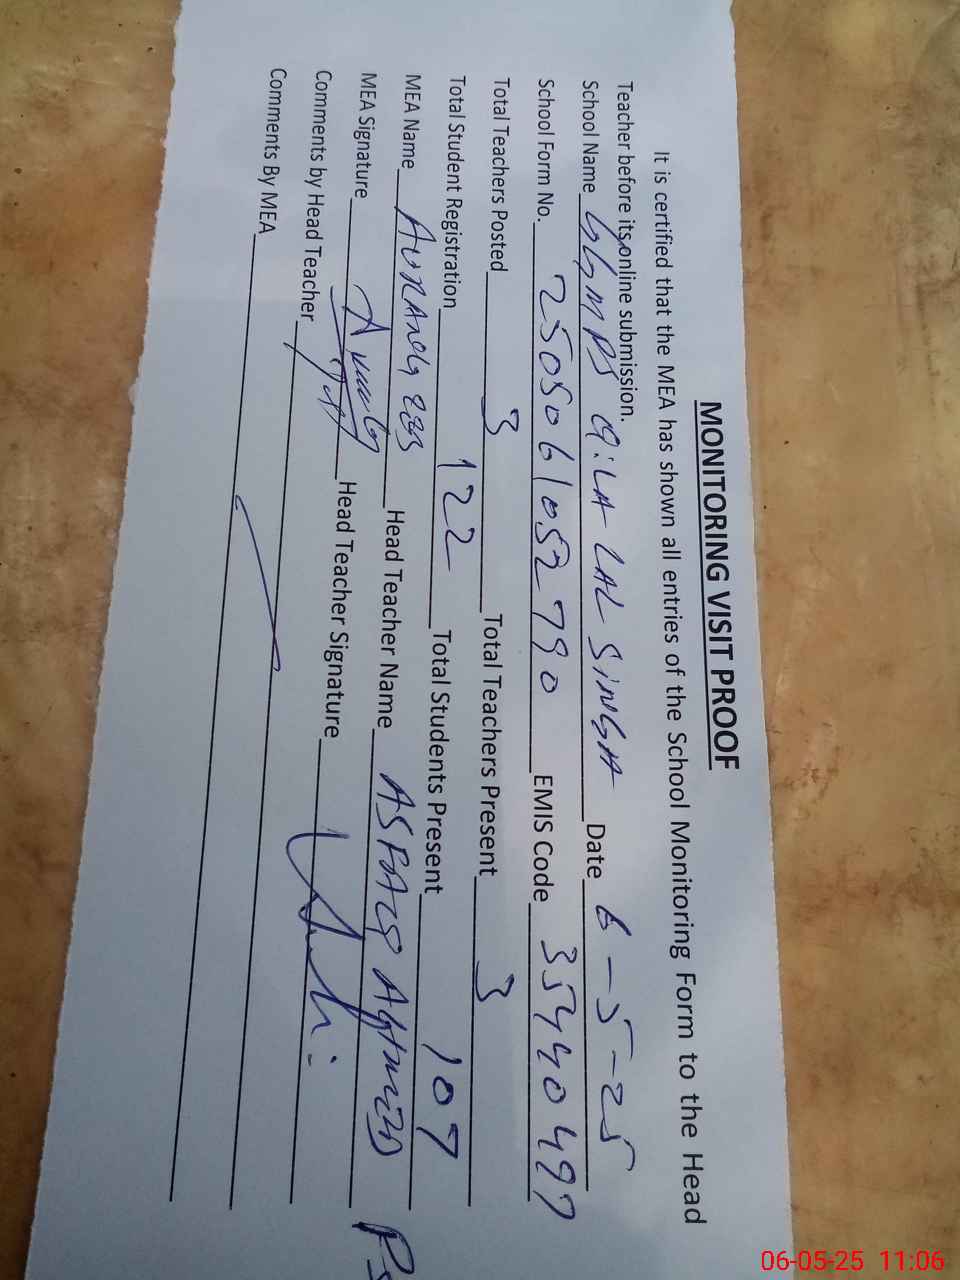 MONITORING VISIT PROOF
It is certified that the MEA has shown all entries of the School Monitoring Form to the Head
Teacher before its online submission.
School Name GGMPS QiLA LAL SiNGH Date 6-5-25
School Form No. 2505061052790 EMIS Code 35440497
Total Teachers Posted 3 Total Teachers Present 3
Total Student Registration 122 Total Students Present 107
MEA Name Head Teacher Name
MEA Signature Head Teacher Signature
Comments by Head Teacher
Comments By MEA
06-05-25 11:06